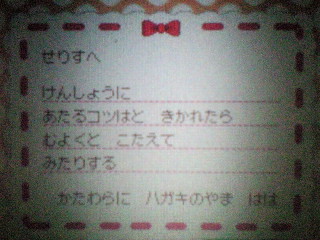 せりすへ
けんしょうに
あたるコツはと　きかれたら
むよくと　こたえて
みたりする
かたわらに　ハガキのやま　はは